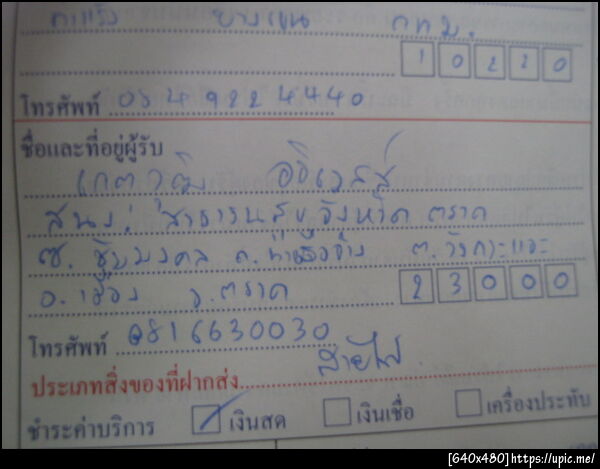 บางเขน กทม.
10220
โทรศัพท์ 084 922 4440
ชื่อและที่อยู่ผู้รับ
สนง. สาธารณสุขจังหวัด ตราด
ซ. ชัยมงคล ถ. ท่าเรือจ้าง ต. วังกระแจะ
อ. เมือง จ. ตราด 23000
โทรศัพท์ 0816630030
ประเภทสิ่งของที่ฝากส่ง สายไฟ
ชำระค่าบริการ เงินสด เงินเชื่อ เครื่องประทับ
[640x480]https://upic.me/